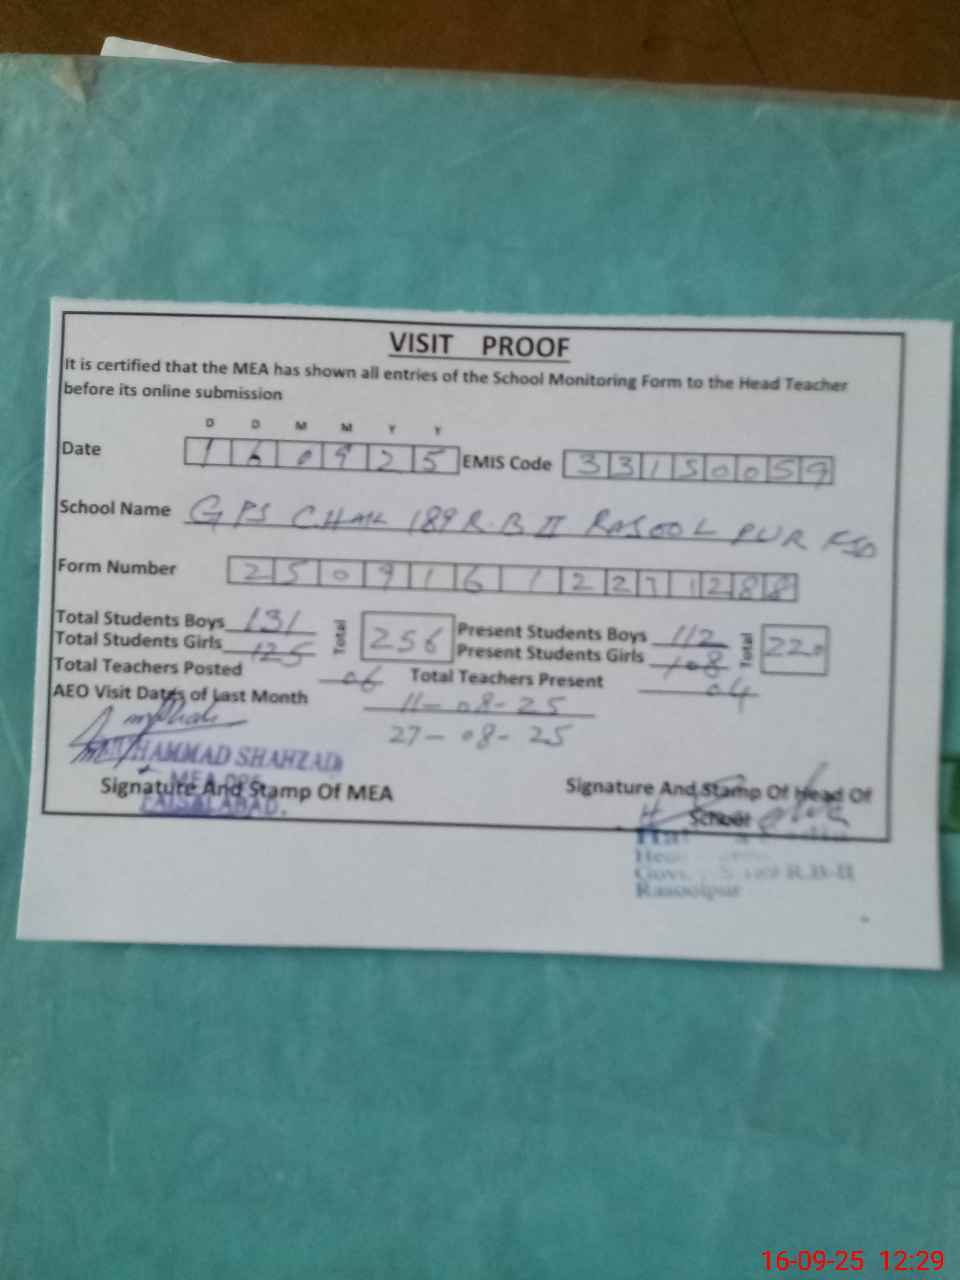 VISIT PROOF
It is certified that the MEA has shown all entries of the School Monitoring Form to the Head Teacher
before its online submission
D D M M Y Y
Date 1 6 0 9 2 5 EMIS Code 3 3 1 5 0 0 5 9
School Name GPS CHAK 189 R.B II RASOOL PUR FSD
Form Number 2 5 0 9 1 6 1 2 2 1 1 2 8 8
Total Students Boys 131 Total 256 Present Students Boys 112 Total 220
Total Students Girls 125 Present Students Girls 108
Total Teachers Posted 06 Total Teachers Present 04
AEO Visit Dates of Last Month 11-08-25
27-08-25
MUHAMMAD SHAHZAD
FAISALABAD.
Signature And Stamp Of MEA
Signature And Stamp Of Head Of
School
Govt. R.B-II
Rasoolpur
16-09-25 12:29